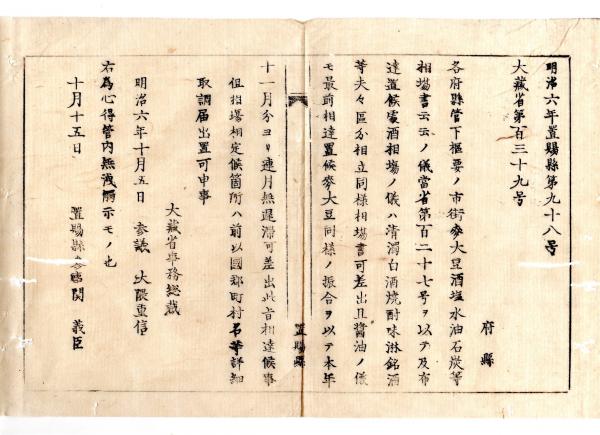 明治六年置賜縣第九十八号
大藏省第百三十九号
府縣
各府縣管下樞要ノ市街麥大豆酒塩水油石炭等
相場書云云ノ儀當省第百二十七号ヲ以テ及布
達置候處酒相場ノ儀ハ清濁白酒焼酎味淋銘酒
等夫々區分相立同様相場書可差出且醤油ノ儀
モ最前相達置候麥大豆同様ノ振合ヲ以テ本年
置賜縣
十一月分ヨリ連月無遅滞可差出此旨相達候事
但相場相定候箇所ハ前以國郡町村名等詳細
取調届出置可申事
大藏省事務総裁
明治六年十月五日 参議 大隈重信
右為心得管内無洩觸示モノ也
十月十五日 置賜縣参事関 義臣